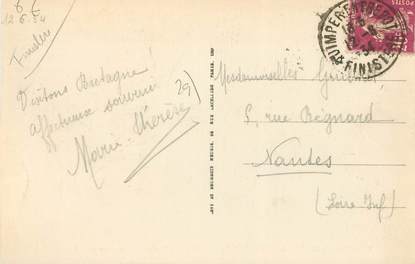 12.6.34
Finistère
29
Visitons Bretagne
affectueux souvenir
Marie-Thérèse
QUIMPER
FINISTÈRE
POSTES
Mesdemoiselles
5, rue Régnard
Nantes
(Loire Inf)